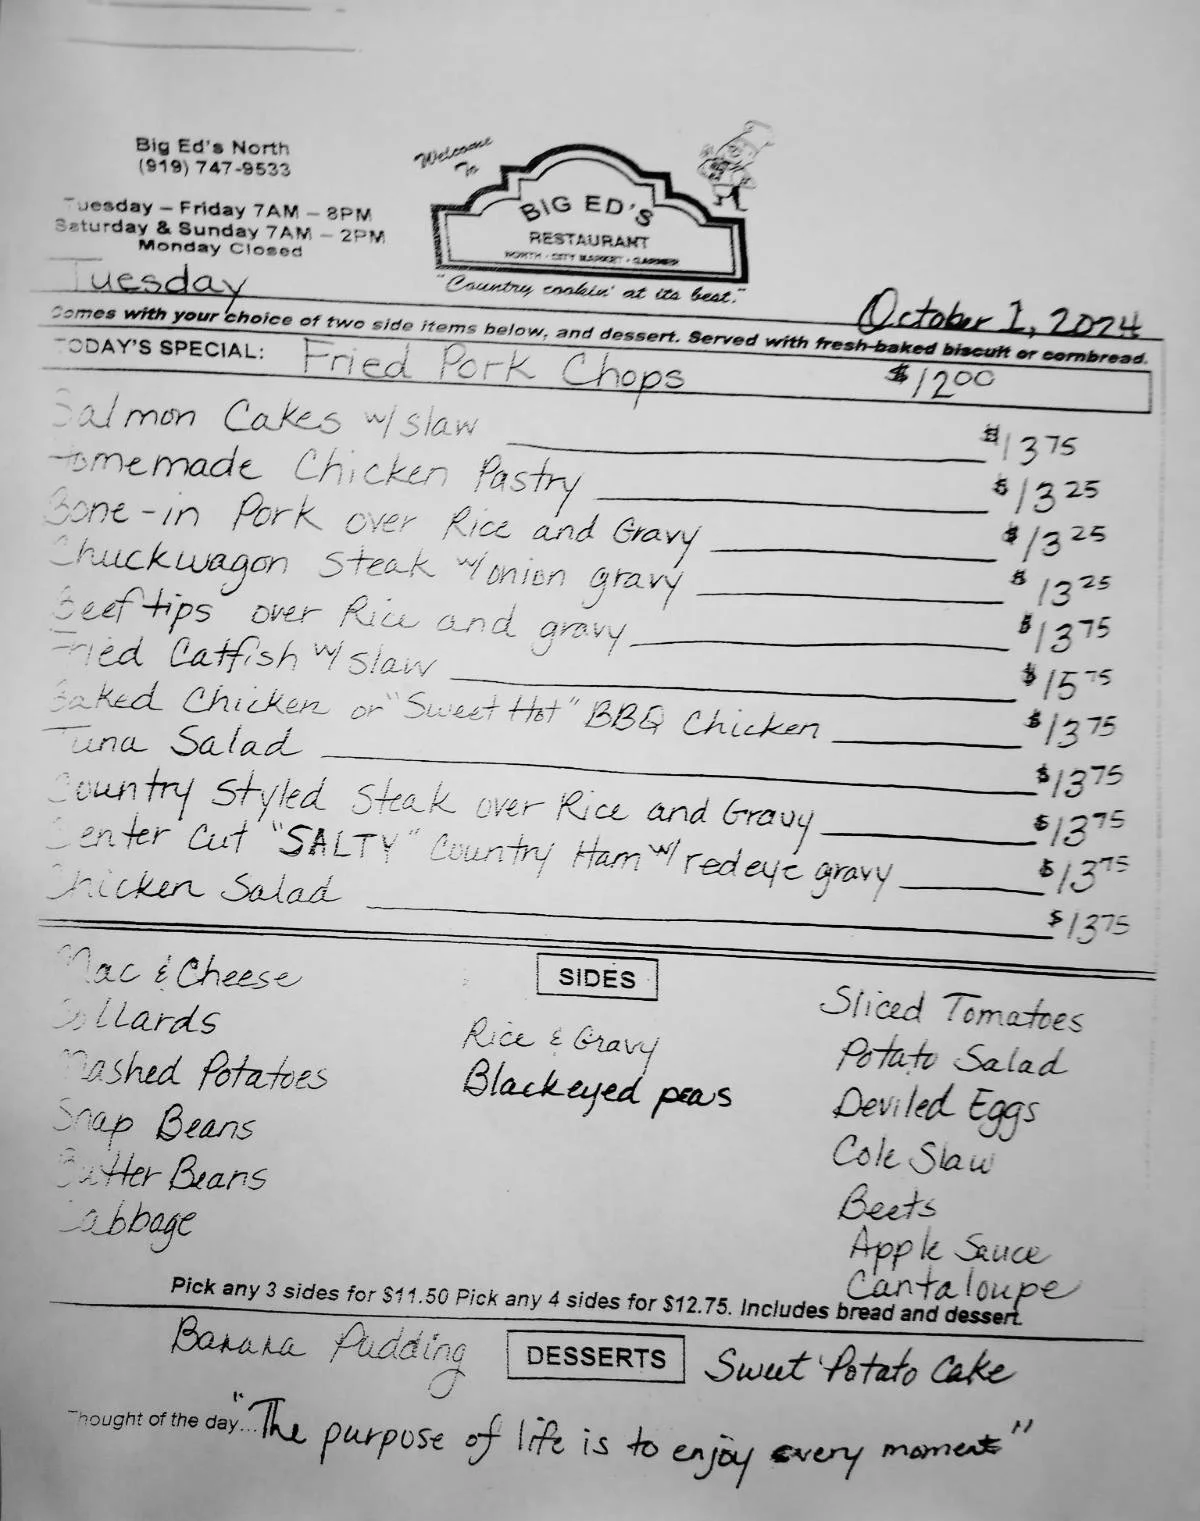 Big Ed's North
(919) 747-9533
Tuesday – Friday 7AM – 8PM
Saturday & Sunday 7AM – 2PM
Monday Closed
Welcome
To
BIG ED'S
RESTAURANT
NORTH - CITY MARKET - GARNER
"Country cookin' at its best."
Tuesday
October 1, 2024
Comes with your choice of two side items below, and dessert. Served with fresh-baked biscuit or cornbread.
TODAY'S SPECIAL: Fried Pork Chops $12.00
Salmon Cakes w/ slaw $13.75
Homemade Chicken Pastry $13.25
Bone-in Pork over Rice and Gravy $13.25
Chuckwagon Steak w/ onion gravy $13.25
Beef tips over Rice and gravy $13.75
Fried Catfish w/ slaw $15.75
Baked Chicken or "Sweet Hot" BBQ Chicken $13.75
Tuna Salad $13.75
Country Styled Steak over Rice and Gravy $13.75
Center Cut "SALTY" Country Ham w/ redeye gravy $13.75
Chicken Salad $13.75
SIDES
Mac & Cheese
Collards
Mashed Potatoes
Snap Beans
Butter Beans
Cabbage
Rice & Gravy
Blackeyed peas
Sliced Tomatoes
Potato Salad
Deviled Eggs
Cole Slaw
Beets
Apple Sauce
Cantaloupe
Pick any 3 sides for $11.50 Pick any 4 sides for $12.75. Includes bread and dessert.
Banana Pudding DESSERTS Sweet Potato Cake
Thought of the day... "The purpose of life is to enjoy every moment"